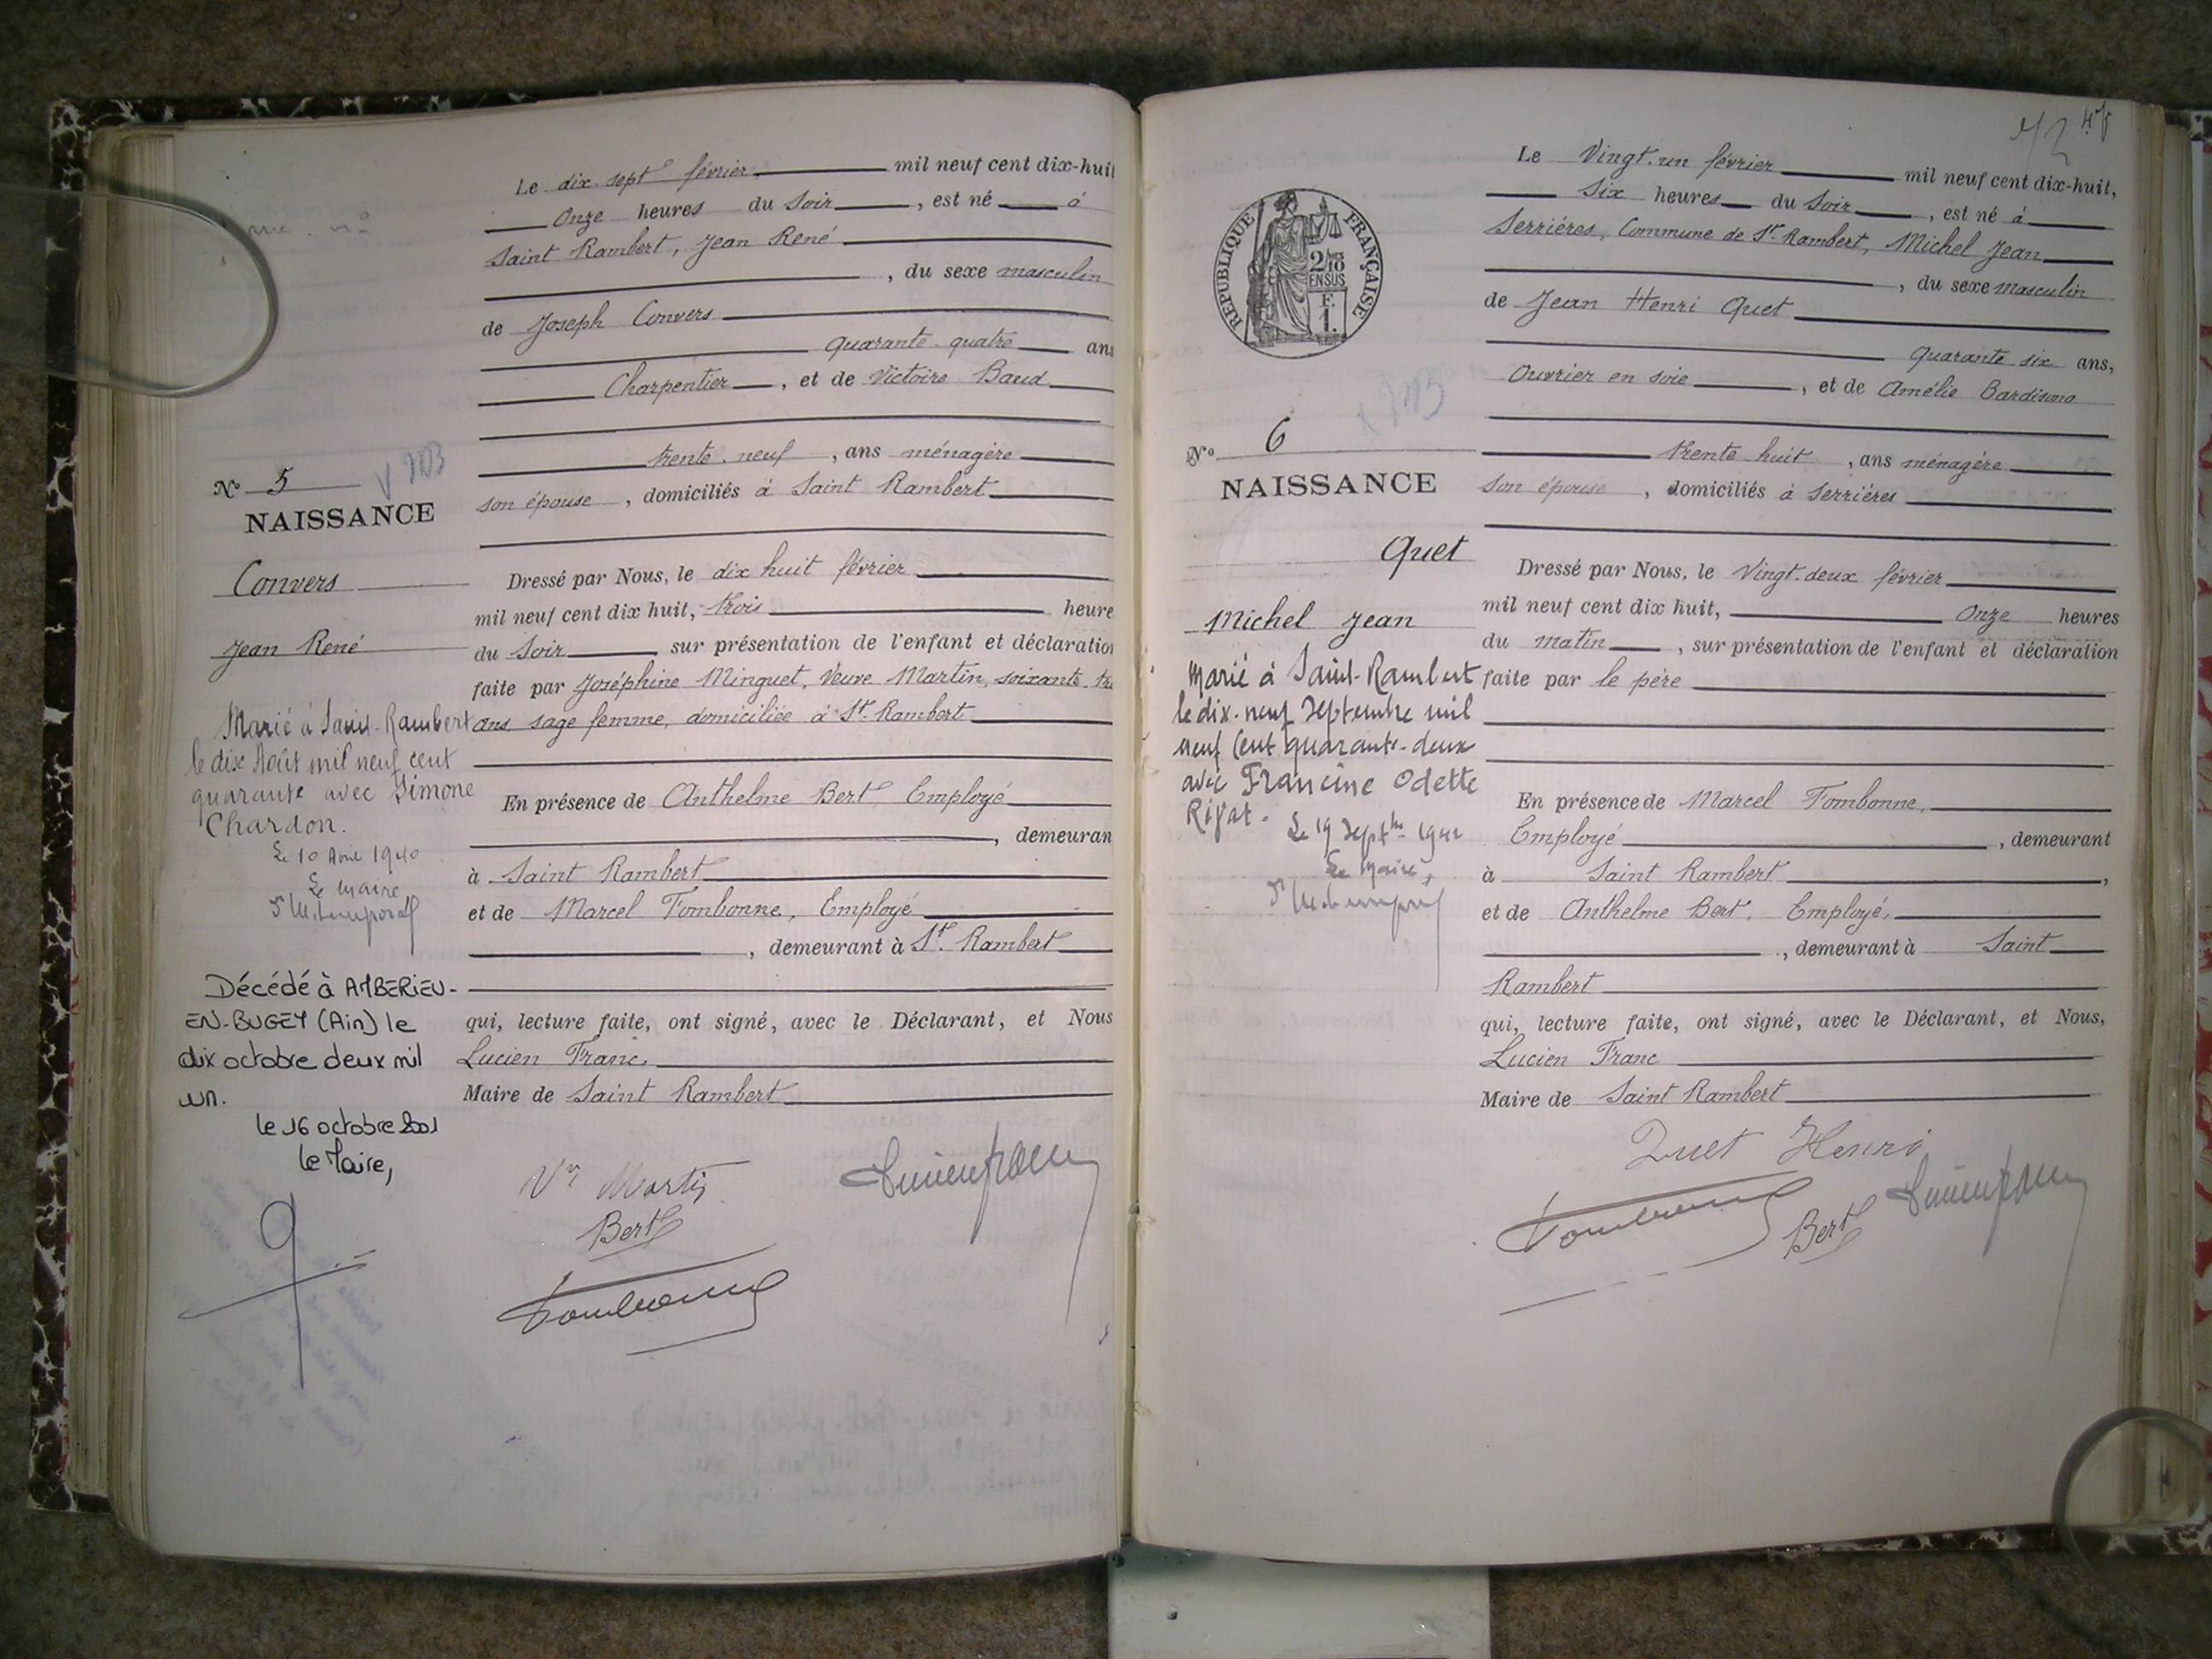 Le dix-sept février mil neuf cent dix-huit
Onze heures du Soir, est né à
Saint Rambert, Jean René
, du sexe masculin
de Joseph Convers
quarante-quatre ans
Charpentier, et de Victoire Baud
trente-neuf, ans ménagère
son épouse, domiciliés à Saint Rambert
Nº 5
NAISSANCE
Convers
Jean René
Dressé par Nous, le dix huit février
mil neuf cent dix huit, trois heure
du Soir sur présentation de l'enfant et déclaration
faite par Joséphine Minguet, Veuve Martin, soixante
ans, sage femme, domiciliée à St. Rambert
En présence de Anthelme Bert, Employé
, demeuran
à Saint Rambert
et de Marcel Tombonne, Employé
, demeurant à St. Rambert
qui, lecture faite, ont signé, avec le Déclarant, et Nous
Lucien Franc,
Maire de Saint Rambert
Marié à Saint-Rambert
le dix Août mil neuf cent
quarante avec Simone
Chardon.
Le 10 Août 1940
Le Maire
Décédé à AMBERIEU-
EN-BUGEY (Ain) le
dix octobre deux mil
un.
le 16 octobre 2001
le Maire,
Vve Martin
Bert
Le Vingt-un février mil neuf cent dix-huit,
Six heures du Soir, est né à
Serrières, Commune de St. Rambert, Michel Jean
, du sexe masculin
de Jean Henri Quet
quarante six ans,
Ouvrier en soie, et de Amélie Bardisono
trente huit, ans ménagère
son épouse, domiciliés à Serrières
REPUBLIQUE FRANÇAISE
2/10
EN SUS
F.
1.
Nº 6
NAISSANCE
Quet
Michel Jean
Dressé par Nous, le Vingt-deux février
mil neuf cent dix huit, Onze heures
du matin, sur présentation de l'enfant et déclaration
faite par le père
En présence de Marcel Tombonne,
Employé, demeurant
à Saint Rambert,
et de Anthelme Bert, Employé,
, demeurant à Saint
Rambert
qui, lecture faite, ont signé, avec le Déclarant, et Nous,
Lucien Franc
Maire de Saint Rambert
Marié à Saint-Rambert
le dix-neuf Septembre mil
neuf Cent quarante-deux
avec Francine Odette
Le 19 Septbre 1942
Le Maire,
Quet Henri
Bert